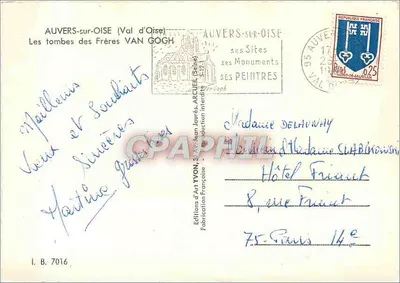 AUVERS-sur-OISE (Val d'Oise)
Les tombes des Frères VAN GOGH
AUVERS-sur-OISE
ses Sites
ses Monuments
ses PEINTRES
95 AUVE
VAL
REPUBLIQUE FRANÇAISE
0,25
Meilleurs
Vœux et Souhaits
Sincères
Martine
Editions d'Art YVON, ARCUEIL (Seine)
Fabrication Française - Reproduction interdite
CPAPHIL
Madame DELAUNAY
Monsieur Madame
Hôtel Friant
8, rue Friant
75-Paris 14e
I. B. 7016